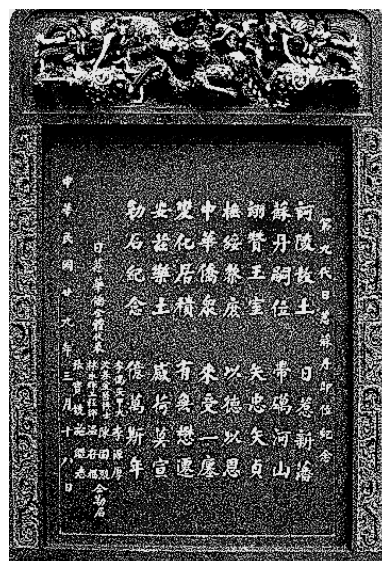 第九代日惹蘇丹即位紀念
訶陵故土 日惹新藩
蘇丹嗣位 帶礪河山
翊贊王室 矢忠矢貞
撫綏黎庶 以德以恩
中華僑眾 來受一廛
變化居積 有無懋遷
安茲樂土 感荷莫宣
勒石紀念 億萬斯年
日惹華僑全體代表 仝勒石
中華民國廿九年三月十八日